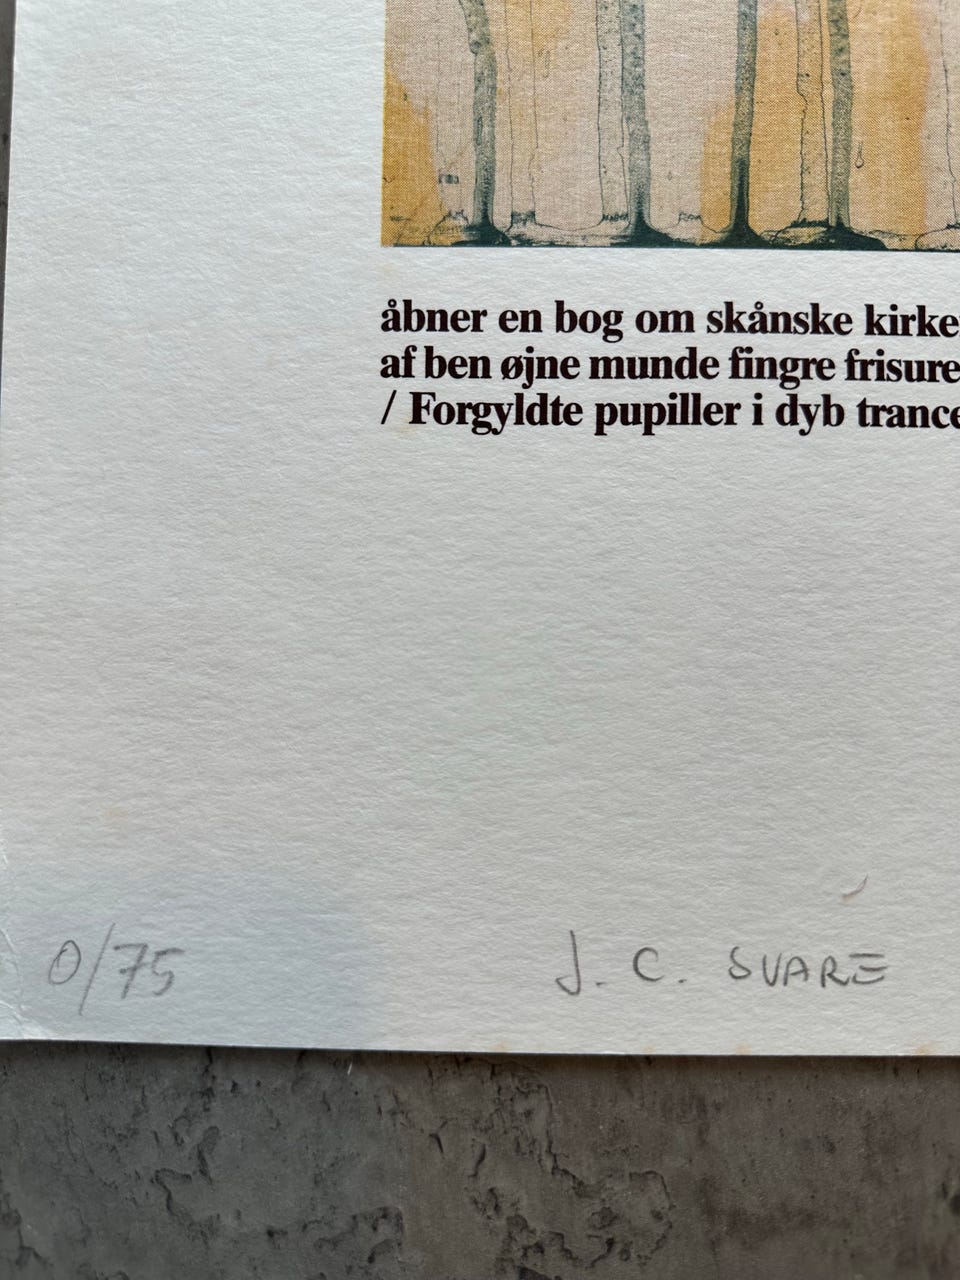 åbner en bog om skånske kirke
af ben øjne munde fingre frisure
/ Forgyldte pupiller i dyb trance
0/75
J. C. SVARE